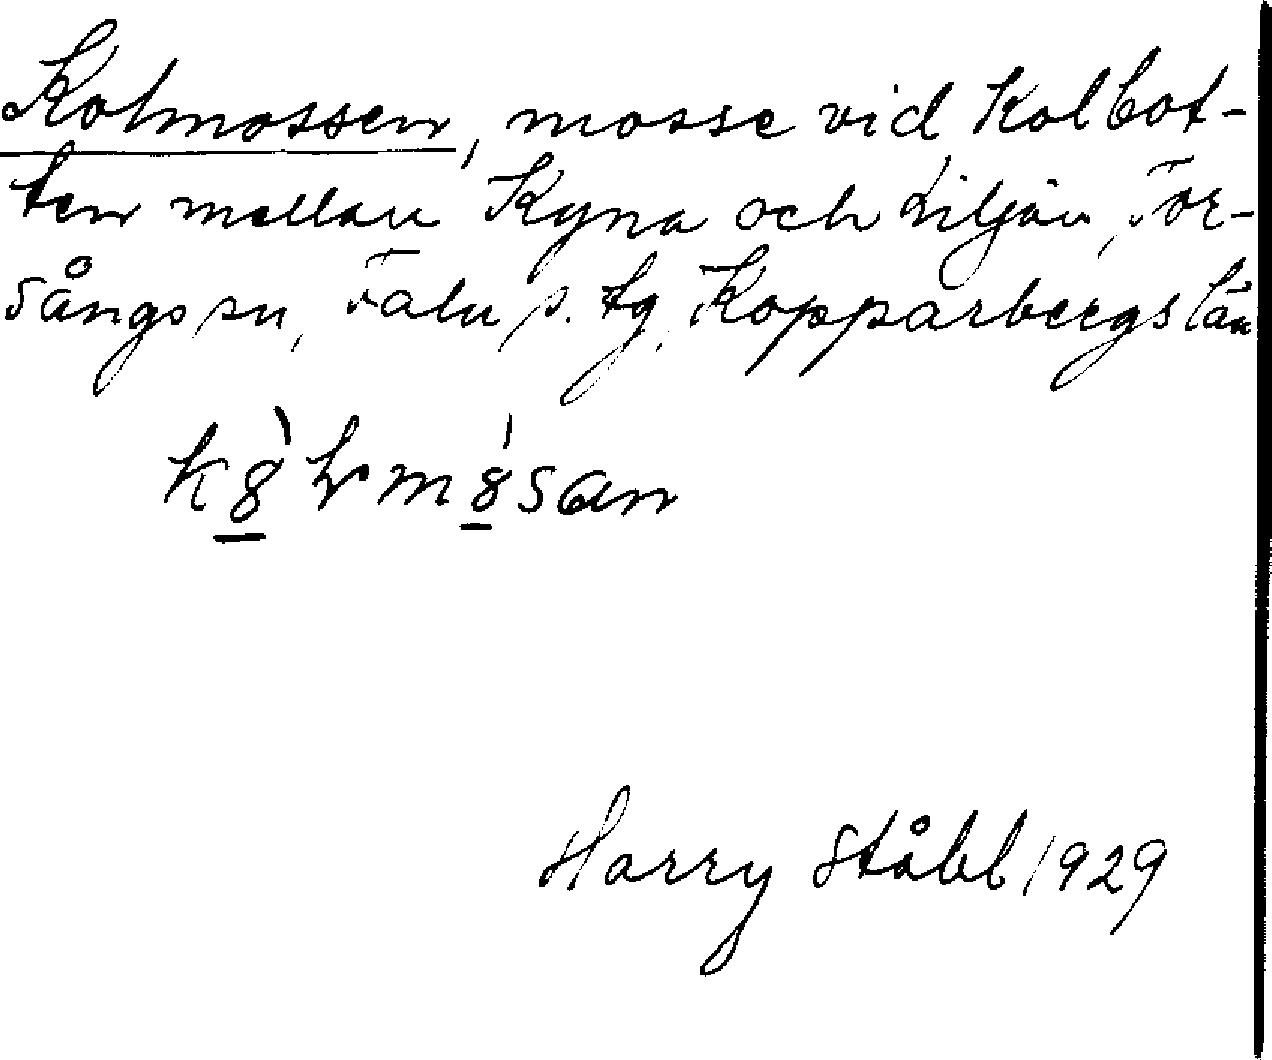 Kolmossen, mosse vid Kolbot-
ten mellan Kyna och Liljån, Tor-
sångs sn, Falu s. tg, Kopparbergs län
Harry Ståhl 1929